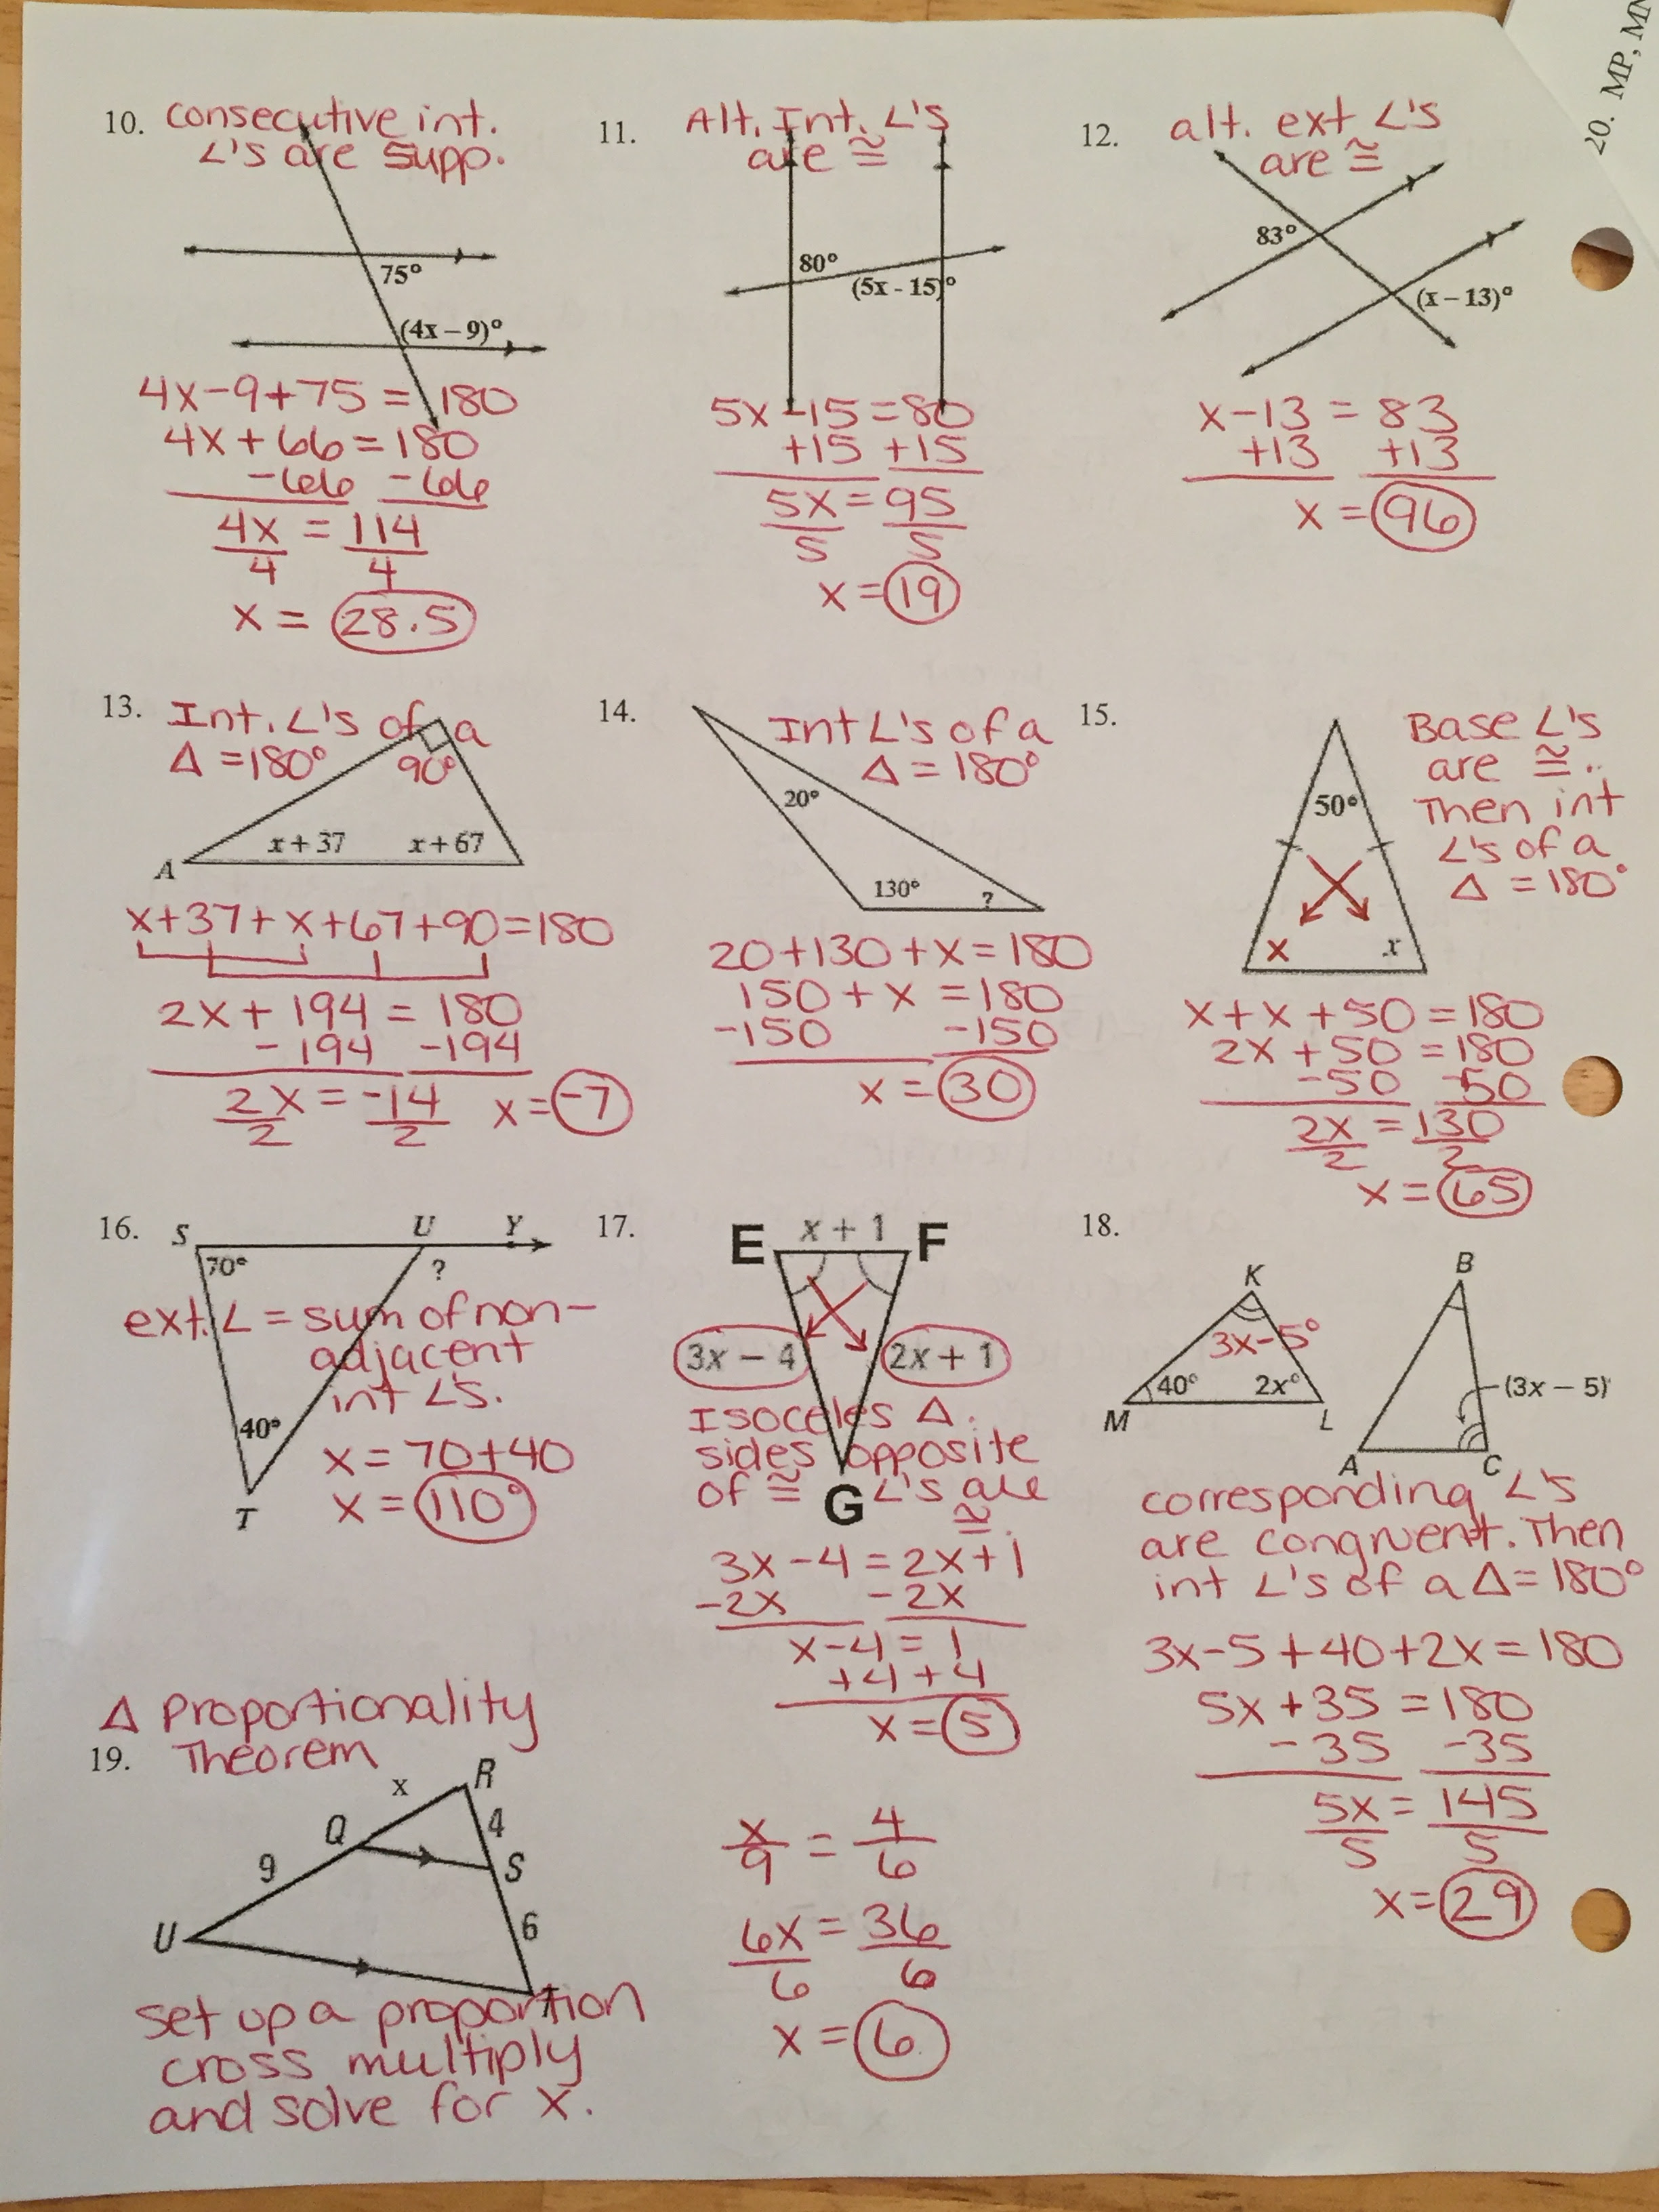 20. MP, MN
10. consecutive int.
∠'s are supp.
75°
(4x – 9)°
4x-9+75 = 180
4x+66=180
-66 -66
4x = 114
4 4
x = 28.5
11. Alt. Int. ∠'s
are ≅
80°
(5x - 15)°
5x-15=80
+15 +15
5x=95
5 5
x=19
12. alt. ext ∠'s
are ≅
83°
(x – 13)°
x-13 = 83
+13 +13
x = 96
13. Int. ∠'s of a
Δ =180°
90°
x + 37 x + 67
A
x+37+x+67+90=180
2x+ 194 = 180
- 194 -194
2x = -14 x=-7
2 2
14. Int ∠'s of a
Δ = 180°
20°
130° ?
20+130+x=180
150+x =180
-150 -150
x=30
15. Base ∠'s
are ≅..
Then int
∠'s of a
Δ = 180°
50°
x x
x+x+50=180
2x+50=180
-50 -50
2x=130
2 2
x=65
16. S U Y
70° ?
ext.∠ = sum of non-
adjacent
int ∠'s.
40°
x = 70+40
x = 110°
T
17. E x + 1 F
3x – 4 2x + 1
Isoceles Δ.
sides opposite
of ≅ ∠'s are
≅.
G
3x-4=2x+1
-2x -2x
x-4=1
+4 +4
x=5
18. K B
3x-5°
40° 2x° (3x – 5)
M L A C
corresponding ∠'s
are congruent. Then
int ∠'s of a Δ=180°
3x-5+40+2x=180
5x+35=180
-35 -35
5x=145
5 5
x=29
Δ Proportionality
19. Theorem
x R
Q 4
9 S
U 6
T
set up a proportion
cross multiply
and solve for x.
x = 4
9 6
6x=36
6 6
x=6